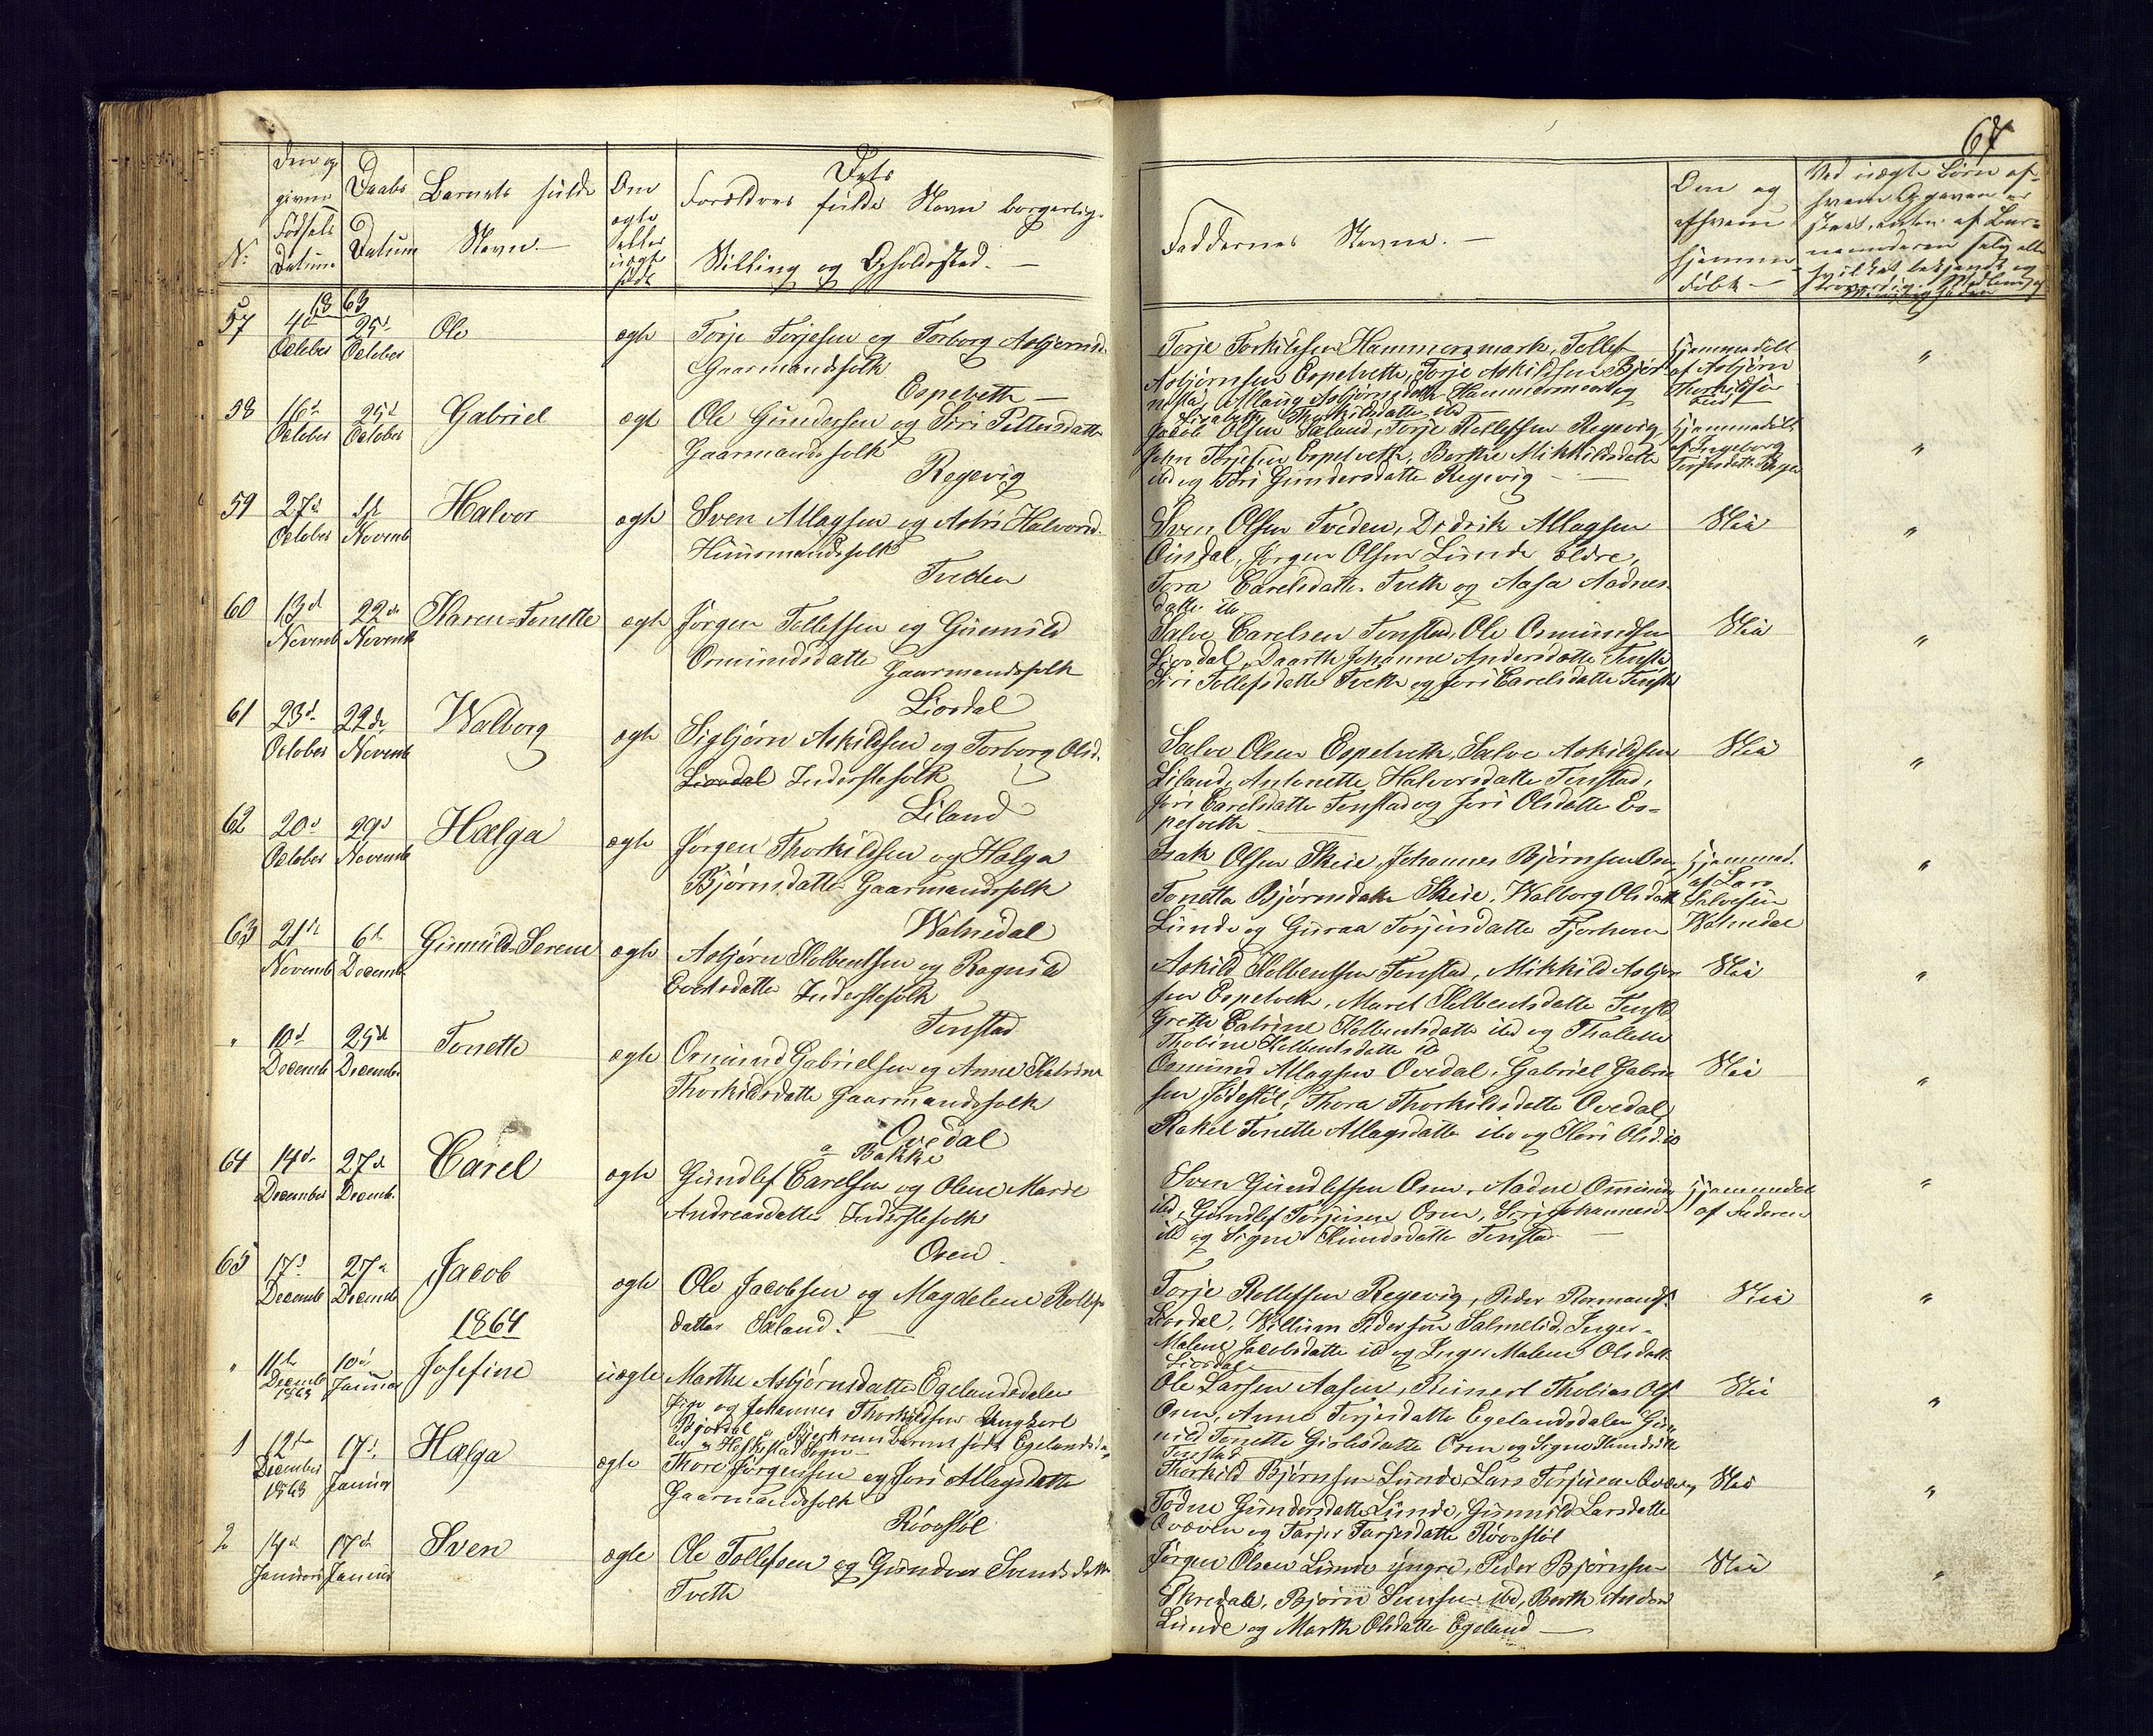 67
N:
Den op
givne
Fødsels
Datum
Daabs
Datum
Barnets fulde
Navn.
Om
ægte
eller
uægte
født
Dets
Forældres fulde Navn borgerlig.
Stilling og Opholdsted.
Faddernes Navne.
Om og
afhvem
hjemme
døbt
Ved uægte Børn af
hvem Opgaven er
57 4de October 18 63 25d October Ole ægte Torje Torjesen og Torborg Asbjørnsd.
Gaarmandsfolk
Espetveth
Torje Torkildsen Hammersmark, Tollef
Asbjørnsen Espetveth, Torje Askildsen
Asbjørnsdatte Hammersmark og
Lisabeth Thorkildsdatte ibd
Hjemmedøbt
af Asbjørn
Thorkildsen
58 16d October 25d October Gabriel ægt Ole Gundersen og Siri Pettersdatte
Gaarmandsfolk
Regevig
Jacob Olsen Sæland, Torje Rollefsen Regevig
John Torjesen Espetveth, Berthe Mikkildsdatte
ibd og Siri Gundersdatte Regevig
Hjemmedøbt
af Ingeborg
59 27d October 1ste Novemb Halvor ægte Sven Allagsen og Astri Halvorsd.
Huusmandsfolk
Tveden
Sven Olsen Tveden, Didrik Allagsen
Jørgen Olsen Lunde ældre,
Tora Carelsdatte Tveth og Aasa Aadnes
datte ib
Nei
60 13d Novemb 22de Novemb Karen=Tonette ægte Jørgen Tollefsen og Gunnild
Osmundsdatte Gaarmandsfolk
Liosdal
Salve Carelsen Tonstad, Ole Osmundsen
Liosdal, Daarth Johanne Andersdatte
Siri Tollefsdatte Tveth og Jori Carelsdatte
Nei
61 23d October 22de Novemb Walborg ægte Sigbjørn Askildsen og Torborg Olsd.
Liosdal Inderstefolk
Liland
Salve Olsen Espetveth, Salve Askildsen
Liland, Antonette Halvorsdatte Tonstad,
Jori Carelsdatte Tonstad og Jori Olsdatte Es=
petveth
Nei
62 20d October 29d Novemb Hælga ægte Jørgen Thorkildsen og Hælga
Bjørnsdatte Gaarmandsfolk
Watnedal
Isak Olsen Skeie, Johannes Bjørnsen
Tonetta Bjørnsdatte Skeie, Walborg Olsdatte
Lunde og Guraa Torjusdatte
Hjemmed.
af Lars
Salvesen
Watnedal
63 21de Novemb 6te Decemb Gunnild=Serene ægte Asbjørn Kolbentsen og Ragnild
Evertsdatte Inderstefolk
Tonstad
Askild Kolbentsen Tonstad, Mikkild Asbjørn
sen Espetveth, Maret Kolbentsdatte
Grethe Catrine Kolbentsdatte ibd og Thallette
Thobine Kolbentsdatte ib
Nei
" 10d Decemb 25de Decemb Tonette ægte Osmund Gabrielsen og Anne Katrine
Thorkildsdatte Gaarmandsfolk
Ovedal
Osmund Allagsen Ovedal, Gabriel Gabriel
sen Jødestøl, Thora Thorkildsdatte Ovedal,
Rakel Tonette Allagsdatte ibd og Kari Olsd ib
Nei
64 14de December 27de Decemb. Carel ægte Gundlef Carelsen Bakke og Olene Marie
Andreasdatte Inderstefolk
Osen
Sven Gundlefsen Osen, Aadne Osmunds
ibd, Gundlef Torjusen Osen, Siri Johannesd
ibd og Signe Knudsdatte Tonstad
Hjemmedøbt
af Faderen
65 17d Decemb 27d Decemb Jacob ægte Ole Jacobsen og Magdelene Rollefs
datte Sæland.
Torje Rollefsen Regevig, Peder Normands.
Liosdal, Willum Pedersen Salmelid, Inger
Malene Jacobsdatte ib og Inger Malene Olsdatte
Liosdal
Nei
1864
" 11te Decemb 1863 10d Januar Josefine uægte Marthe Asbjørnsdatte Egelandsdalen
Pige og Johannes Thorkildsen Ungkarl
Ole Larsen Aasen, Reinert Thobias Ols
Osen, Anne Torjesdatte Egelandsdalen Gun
nild Tonette Giolesdatte Osen og Signe Knudsdatte
Tonstad
Nei
1 12te December 1863 17d Januar Hælga ægte Thore Jørgensen og Jori Allagsdatte
Gaarmandsfolk
Røvstøl
Thorkild Bjørnsen Lunde, Lars Torjusen Qvæven
Todne Gundersdatte Lunde, Gunnild Larsdatte
Qvæven og Tarjer Tarjesdatte Røvstøl
Nei
2 14d Januar 17de Januar Sven ægte Ole Tollefsen og Gundvor Svendsdatte
Tveth
Jørgen Olsen Lunde yngre, Peder Bjørnsen
Skredale, Bjørn Svensen ibd, Berth Anders
Lunde og Marth Olsdatte Egeland
Nei